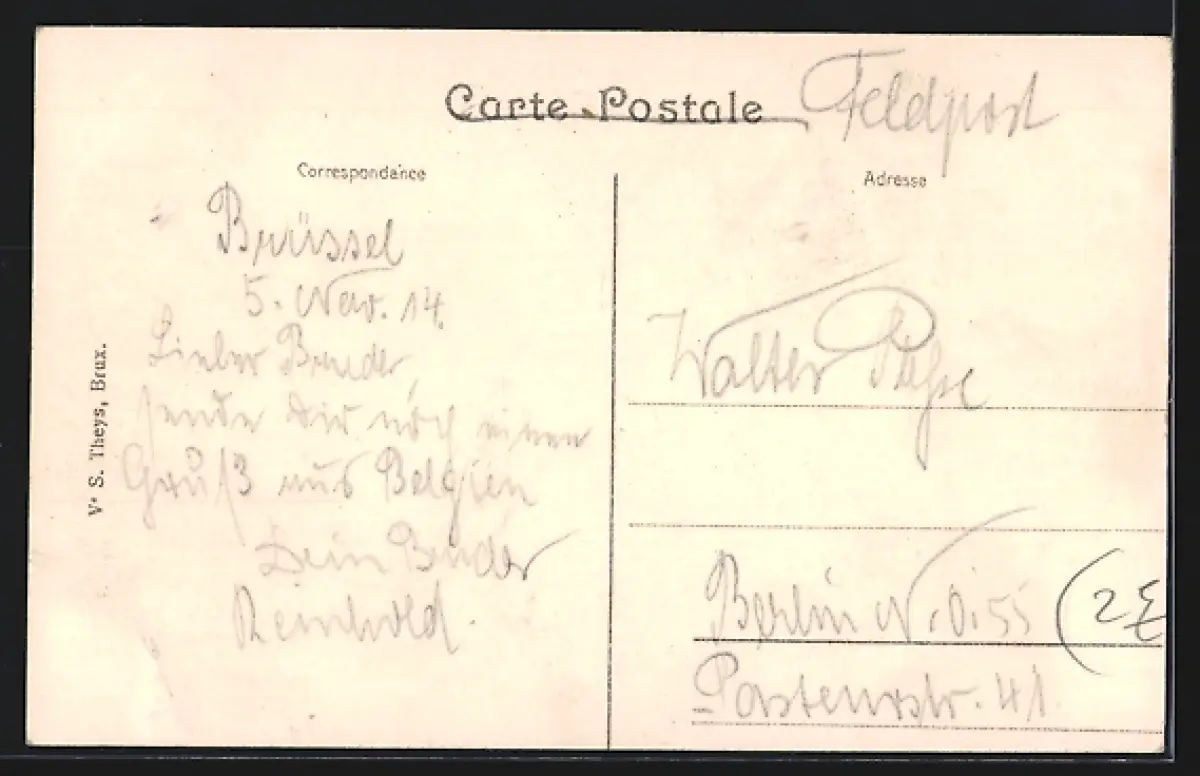 Carte Postale
Feldpost
Correspondance
Adresse
Brüssel
5. Nov. 14.
Lieber Bruder,
sende Dir noch einen
Gruß aus Belgien
Dein Bruder
Reinhold.
Vᵉ S. Theys, Brux.
Walter
Berlin N.O. 55
Pasteurstr. 41